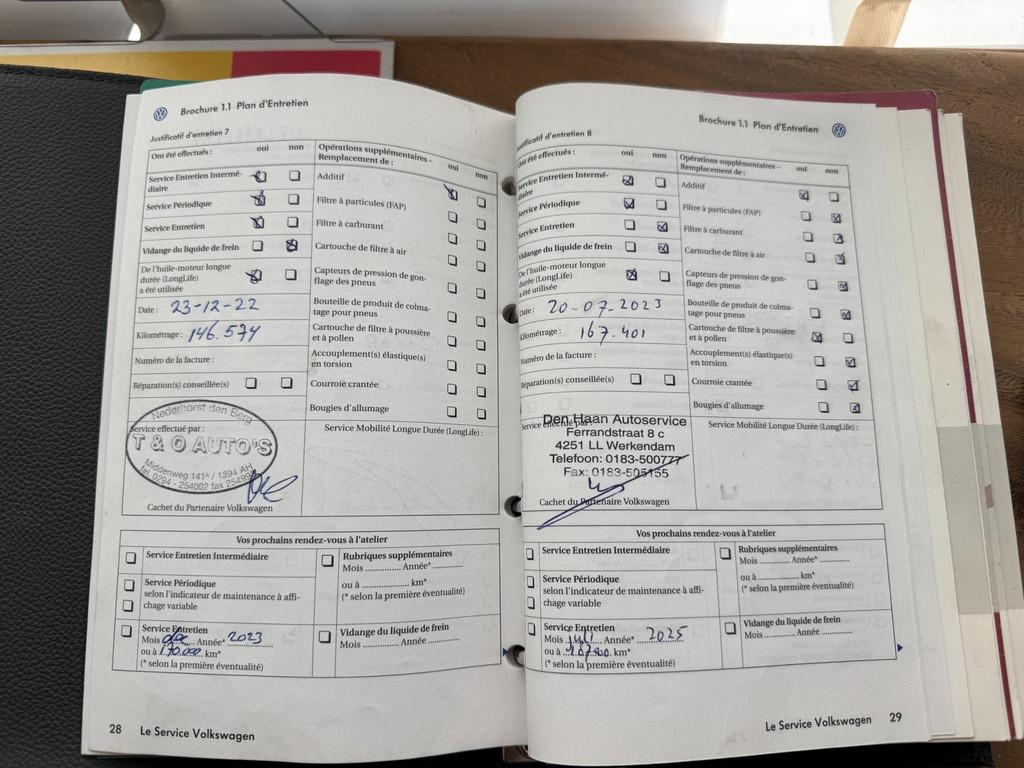 Brochure 1.1 Plan d'Entretien
Justificatif d'entretien 7
Ont été effectués : oui non
Service Entretien Intermé-
diaire
Service Périodique
Service Entretien
Vidange du liquide de frein
De l'huile-moteur longue
durée (LongLife)
a été utilisée
Date : 23-12-22
Kilométrage : 146.574
Numéro de la facture :
Réparation(s) conseillée(s)
Opérations supplémentaires –
Remplacement de : oui non
Additif
Filtre à particules (FAP)
Filtre à carburant
Cartouche de filtre à air
Capteurs de pression de gon-
flage des pneus
Bouteille de produit de colma-
tage pour pneus
Cartouche de filtre à poussière
et à pollen
Accouplement(s) élastique(s)
en torsion
Courroie crantée
Bougies d'allumage
Service effectué par :
Nederhorst den Berg
T & O AUTO'S
Middenweg 141ᴬ / 1394 AH
tel. 0294 - 254002 fax 254999
Cachet du Partenaire Volkswagen
Service Mobilité Longue Durée (LongLife) :
Vos prochains rendez-vous à l'atelier
Service Entretien Intermédiaire
Service Périodique
selon l'indicateur de maintenance à affi-
chage variable
Service Entretien
Mois dec Année* 2023
ou à 170.000 km*
(* selon la première éventualité)
Rubriques supplémentaires
Mois ............ Année* ............
ou à ..................... km*
(* selon la première éventualité)
Vidange du liquide de frein
Mois ............ Année ............
28 Le Service Volkswagen
Brochure 1.1 Plan d'Entretien
Justificatif d'entretien 8
Ont été effectués : oui non
Service Entretien Intermé-
diaire
Service Périodique
Service Entretien
Vidange du liquide de frein
De l'huile-moteur longue
durée (LongLife)
a été utilisée
Date : 20-07-2023
Kilométrage : 167.401
Numéro de la facture :
Réparation(s) conseillée(s)
Opérations supplémentaires –
Remplacement de : oui non
Additif
Filtre à particules (FAP)
Filtre à carburant
Cartouche de filtre à air
Capteurs de pression de gon-
flage des pneus
Bouteille de produit de colma-
tage pour pneus
Cartouche de filtre à poussière
et à pollen
Accouplement(s) élastique(s)
en torsion
Courroie crantée
Bougies d'allumage
Service effectué par :
Den Haan Autoservice
Ferrandstraat 8 c
4251 LL Werkendam
Telefoon: 0183-500777
Fax: 0183-505155
Cachet du Partenaire Volkswagen
Service Mobilité Longue Durée (LongLife) :
Vos prochains rendez-vous à l'atelier
Service Entretien Intermédiaire
Service Périodique
selon l'indicateur de maintenance à affi-
chage variable
Service Entretien
Mois juli Année* 2025
ou à km*
(* selon la première éventualité)
Rubriques supplémentaires
Mois ............ Année* ............
ou à ..................... km*
(* selon la première éventualité)
Vidange du liquide de frein
Mois ............ Année ............
Le Service Volkswagen 29